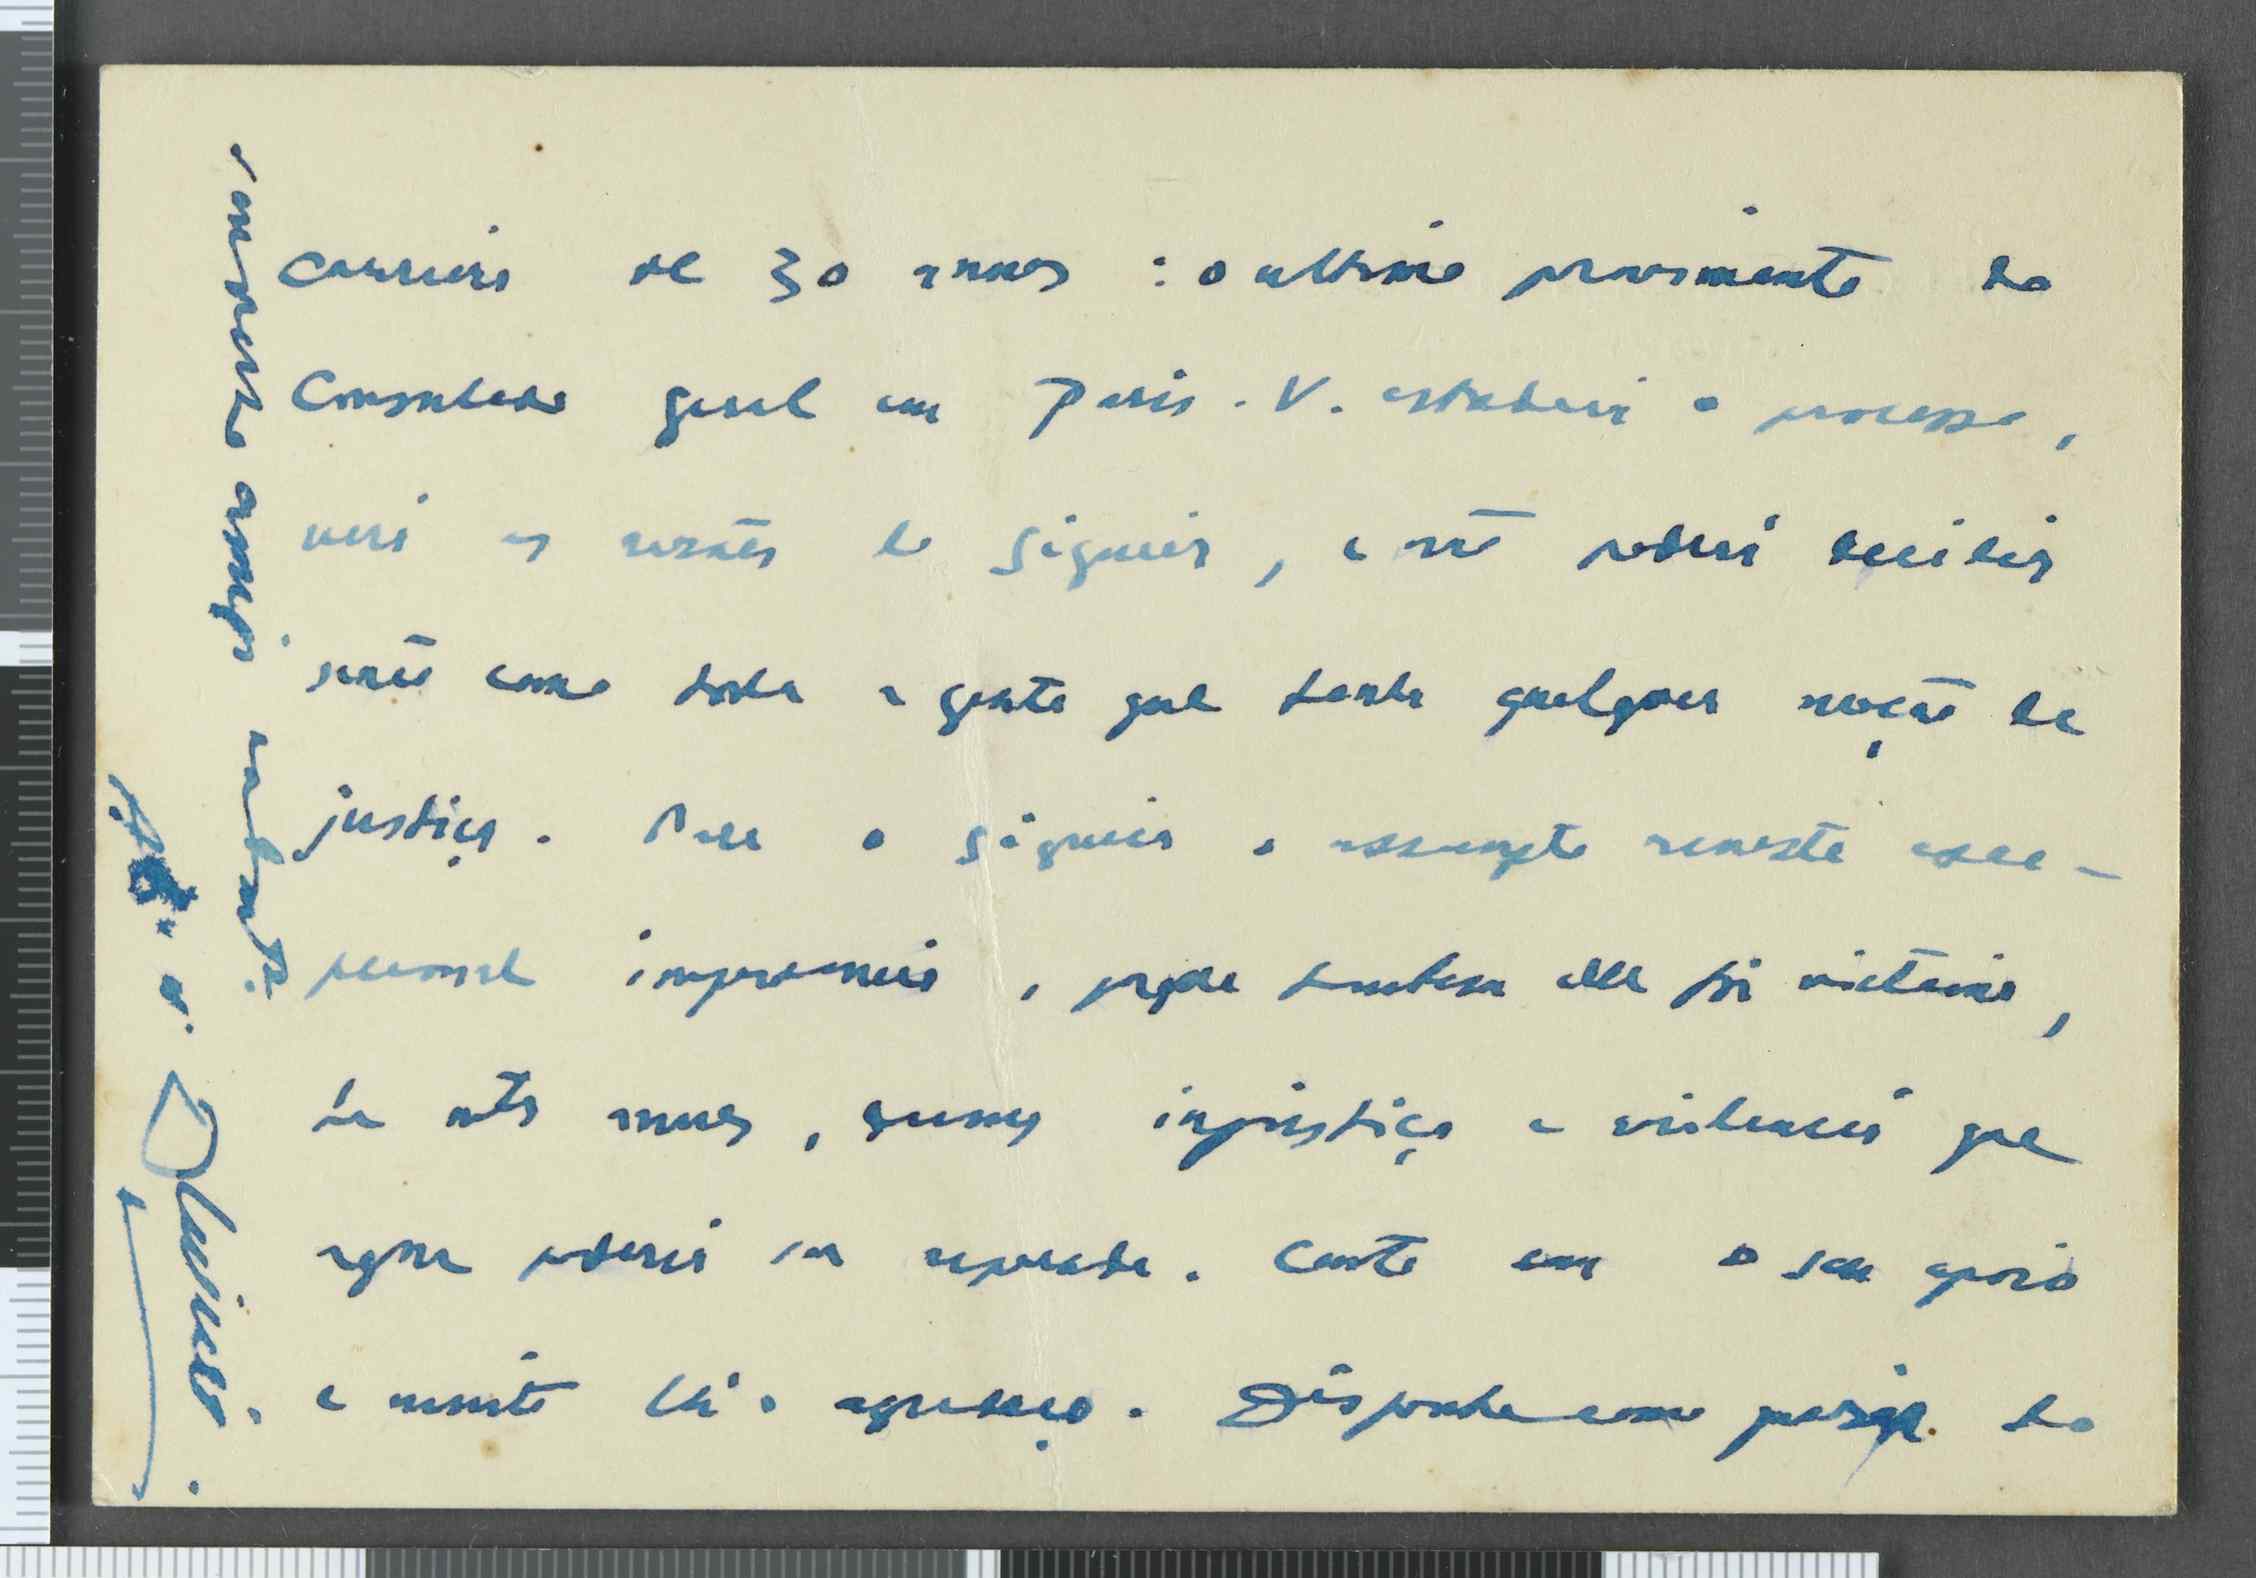 carreira de 30 annos : o ultimo provimento do
Consulado geral em Paris. V. estudará o processo,
verá as razões do Siqueira, e não poderá decidir
senão como toda a gente que tenha qualquer noção de
justiça. Para o Siqueira o assumpto reveste exce-
pcional importancia, porque tambem elle foi victima,
ha mtos annos, duma injustiça e violencia que
agora poderia ser reparada. Conto com o seu apoio
e muito lh'o agradeço. Disponha como queira do
amigo
Aluisio.